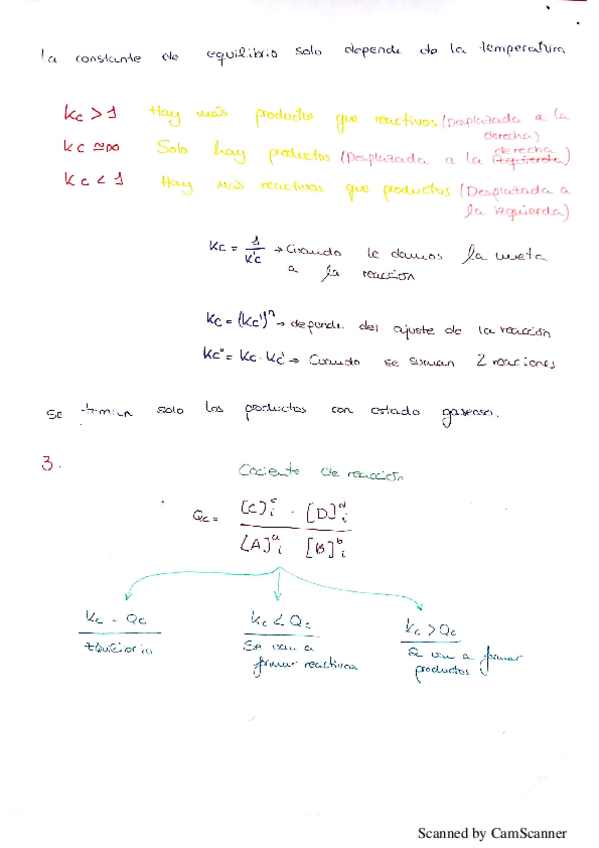 La constante de equilibrio solo depende de la temperatura
Kc > 1 Hay más productos que reactivos (Desplazada a la
derecha)
derecha
Kc ≅ ∞ Solo hay productos (Desplazada a la izquierda)
Kc < 1 Hay más reactivos que productos (Desplazada a
la izquierda)
Kc = 1/K'c → Cuando le damos la vuelta
a la reacción
Kc = (Kc')ⁿ → depende del ajuste de la reacción
Kc'' = Kc · Kc' → Cuando se suman 2 reacciones
Se toman solo los productos con estado gaseoso.
3.
Cociente de reacción
Qc = [C]ᶜᵢ · [D]ᵈᵢ
[A]ᵃᵢ [B]ᵇᵢ
Kc = Qc Kc < Qc Kc > Qc
Se van a Se van a formar
formar reactivos productos
Scanned by CamScanner